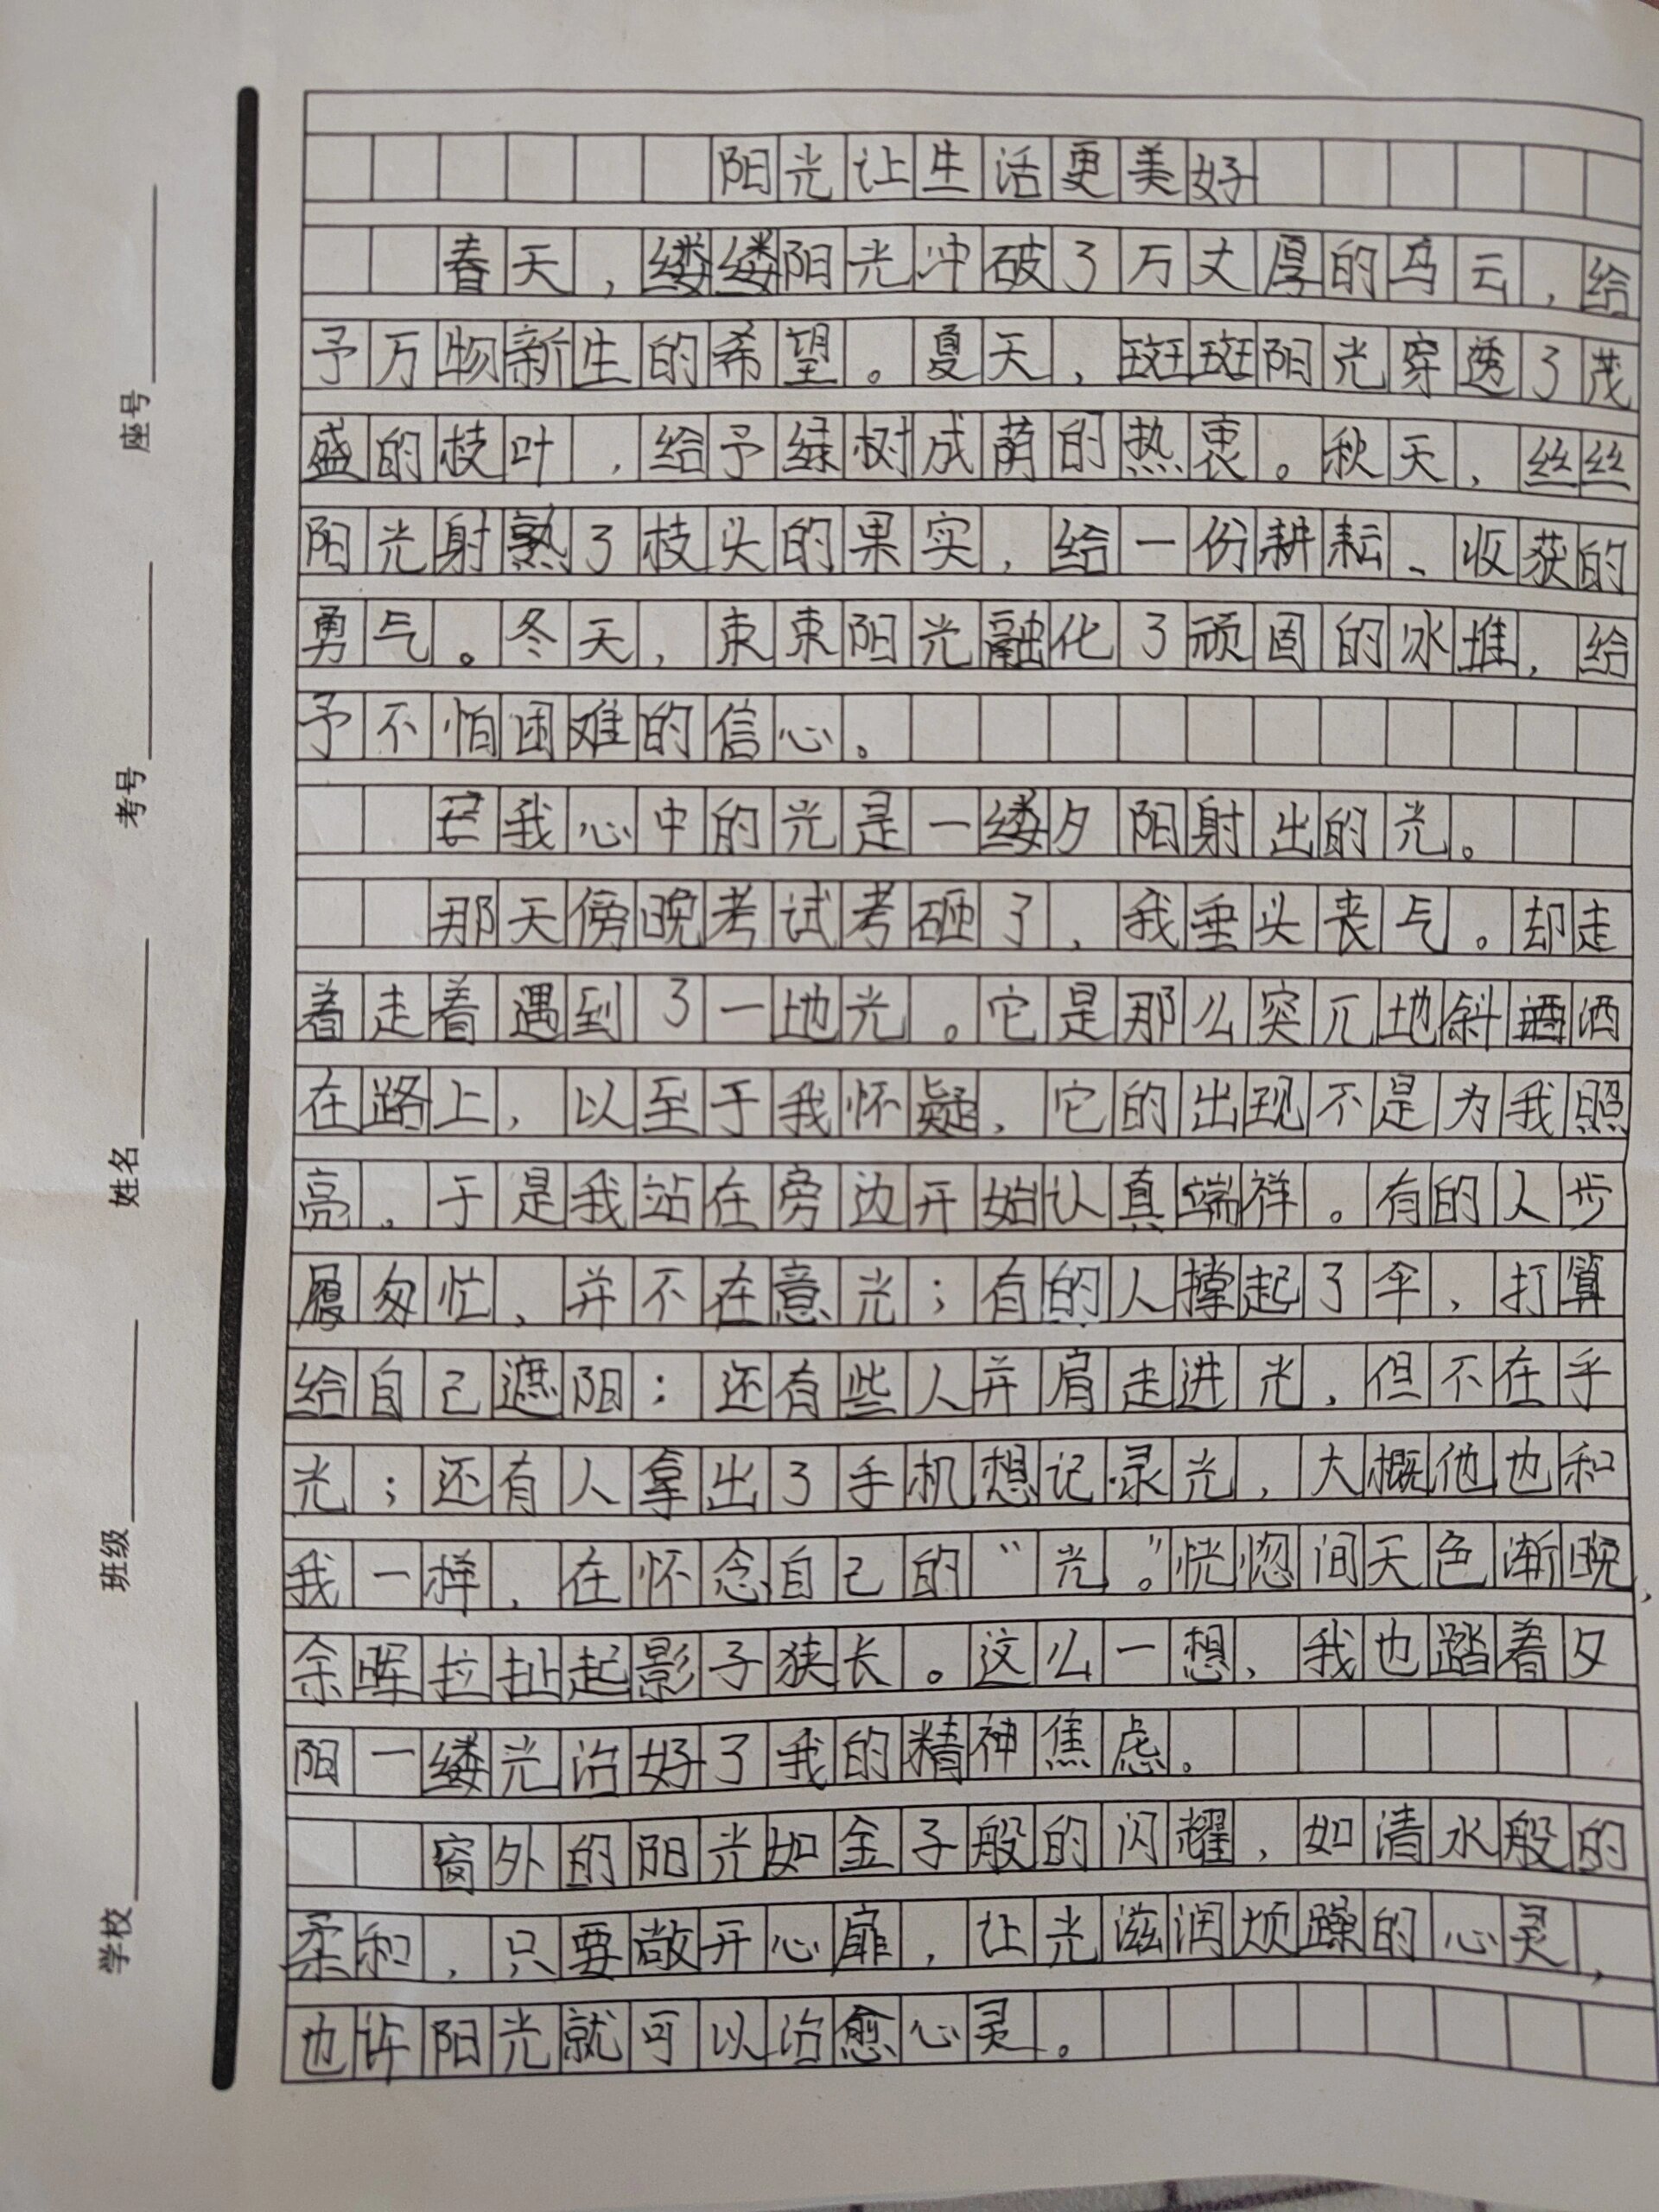 阳光让生活更美好
春天，缕缕阳光冲破了万丈厚的乌云，给
予万物新生的希望。夏天，斑斑阳光穿透了茂
盛的枝叶，给予绿树成荫的热衷。秋天，丝丝
阳光射熟了枝头的果实，给一份耕耘、收获的
勇气。冬天，束束阳光融化了顽固的冰堆，给
予不怕困难的信心。
我心中的光是一缕夕阳射出的光。
那天傍晚考试考砸了，我垂头丧气。却走
着走着遇到了一地光。它是那么突兀地斜洒
在路上，以至于我怀疑，它的出现不是为我照
亮。于是我站在旁边开始认真端祥。有的人步
履匆忙，并不在意光；有的人撑起了伞，打算
给自己遮阳；还有些人并肩走进光，但不在乎
光；还有人拿出了手机想记录光，大概他也和
我一样，在怀念自己的“光。”恍惚间天色渐晚，
余晖拉扯起影子狭长。这么一想，我也踏着夕
阳一缕光治好了我的精神焦虑。
窗外的阳光如金子般的闪耀，如清水般的
柔和，只要敞开心扉，让光滋润烦躁的心灵，
也许阳光就可以治愈心灵。
座号
考号
姓名
班级
学校